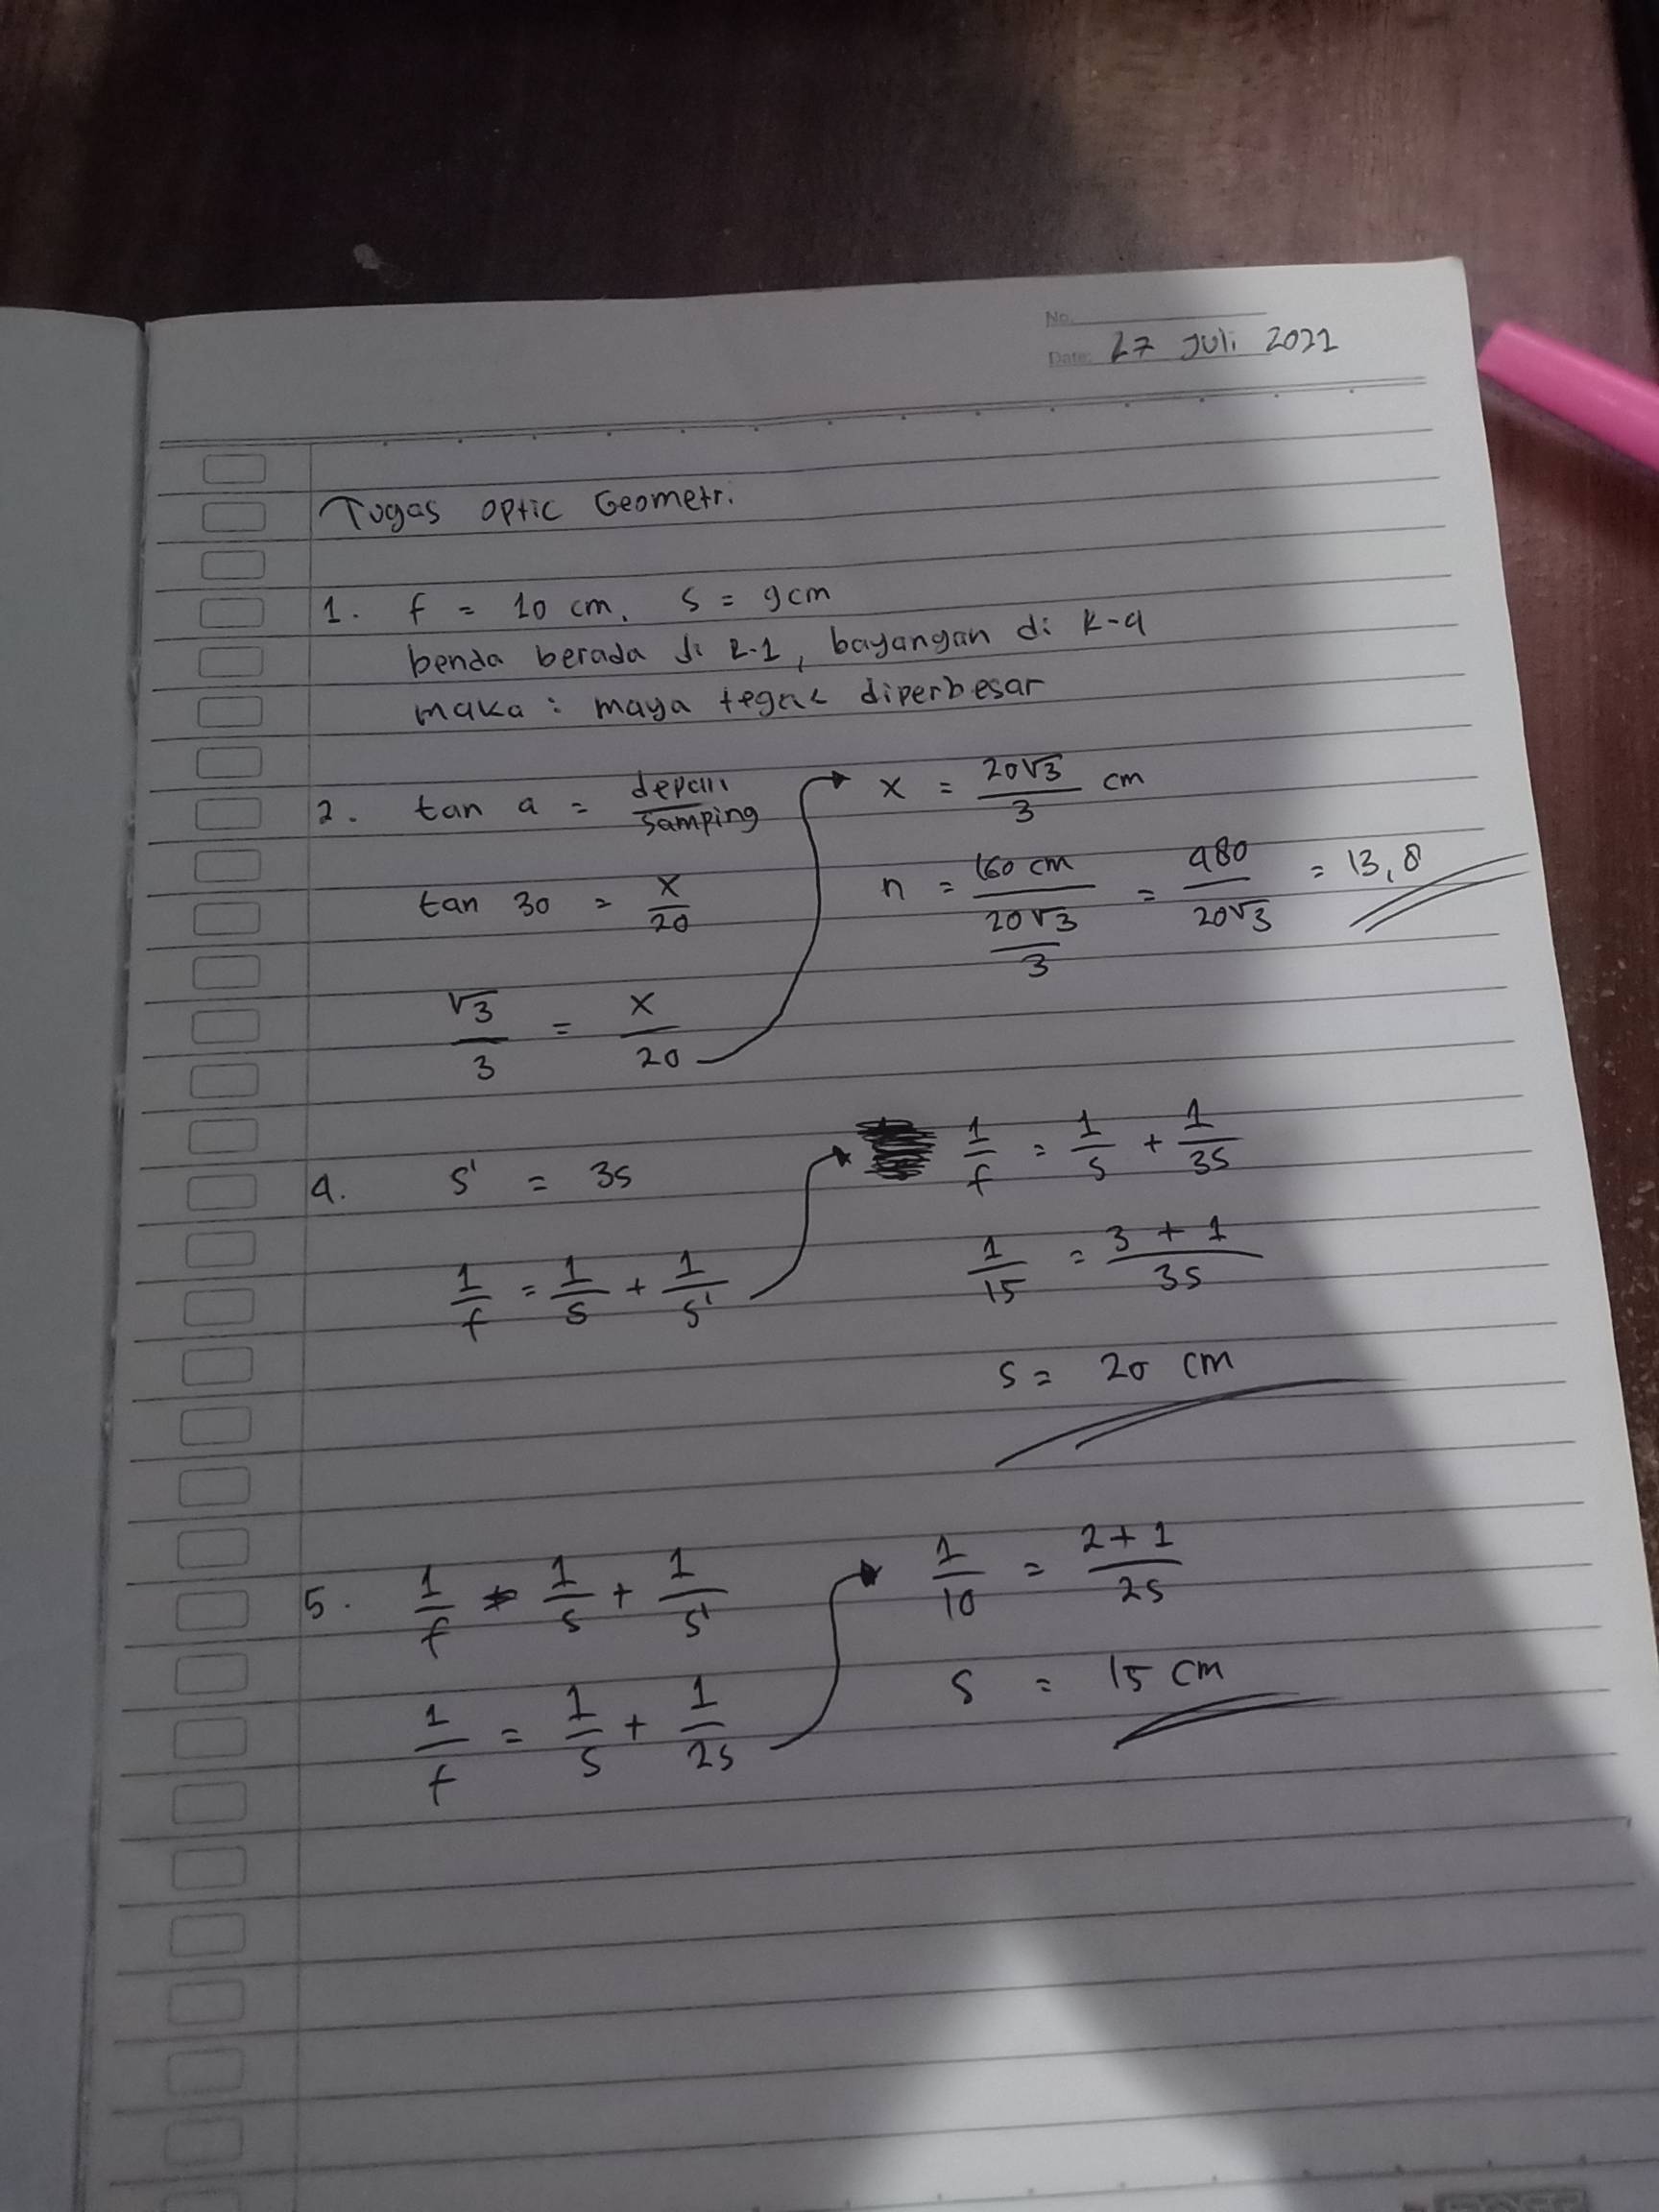 No.
Date: 27 Juli 2021
Tugas optic Geometri
1. f = 10 cm, s = 9cm
benda berada di R-1, bayangan di R-4
maka : maya tegak diperbesar
2. tan a = depan/samping
tan 30 = x/20
√3/3 = x/20
x = 20√3/3 cm
n = 160 cm/(20√3/3) = 480/20√3 = 13,8
4. s' = 3s
1/f = 1/s + 1/s'
1/f = 1/s + 1/3s
1/15 = 3 + 1/3s
s = 20 cm
5. 1/f = 1/s + 1/s'
1/f = 1/s + 1/2s
1/10 = 2+1/2s
s = 15 cm